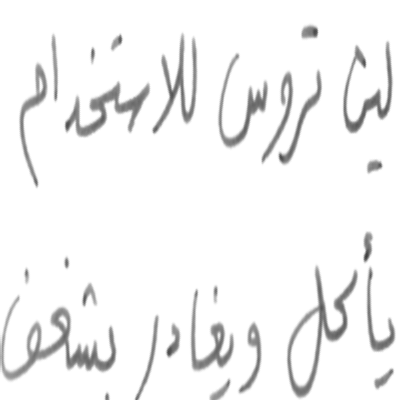 لين تروس للاستخدام
يأكل ويغادر بشغف